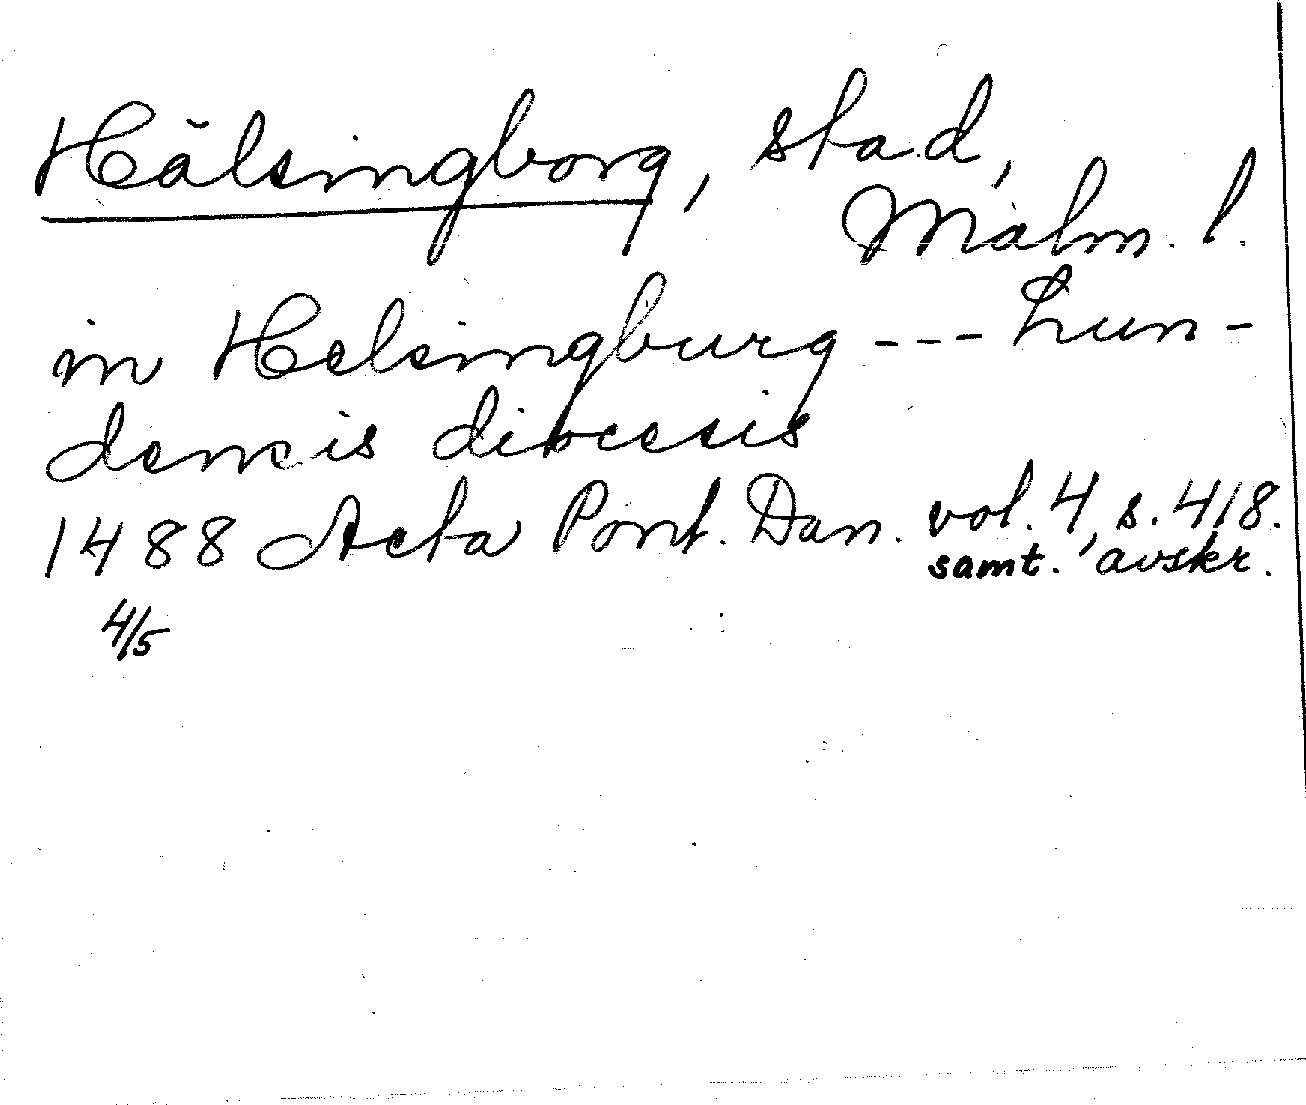 Hälsingborg, stad,
Malm. l.
in Helsingburg --- Lun-
densis diocesis
1488 Acta Pont. Dan. vol. 4, s. 418.
samt. avskr.
4/5